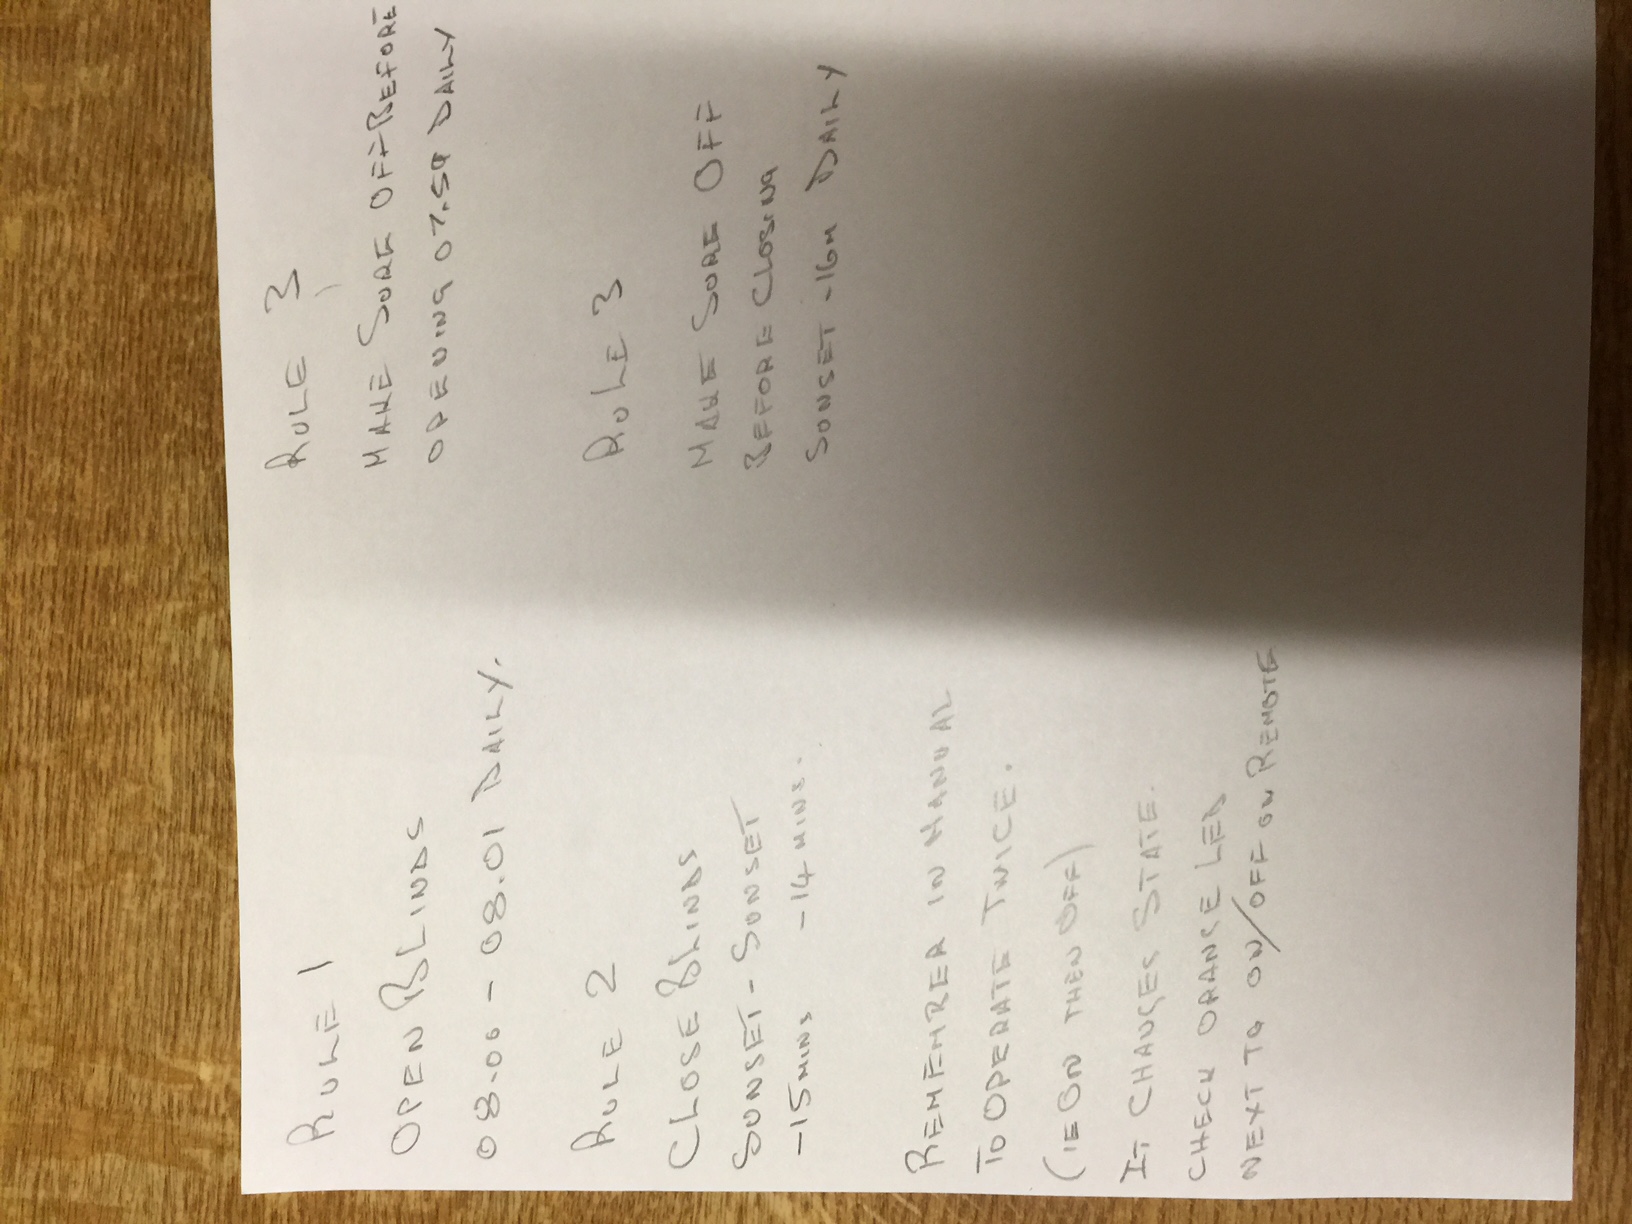 RULE 1
OPEN BLINDS
08.00 - 08.01 DAILY.
RULE 2
CLOSE BLINDS
SUNSET - SUNSET
-15 MINS -14 MINS.
REMEMBER IN MANUAL
TO OPERATE TWICE.
(IE ON THEN OFF)
IT CHANGES STATE.
CHECK ORANGE LED
NEXT TO ON/OFF ON REMOTE
RULE 3
MAKE SURE OFF BEFORE
OPENING 07.59 DAILY
RULE 3
MAKE SURE OFF
BEFORE CLOSING
SUNSET -16M DAILY